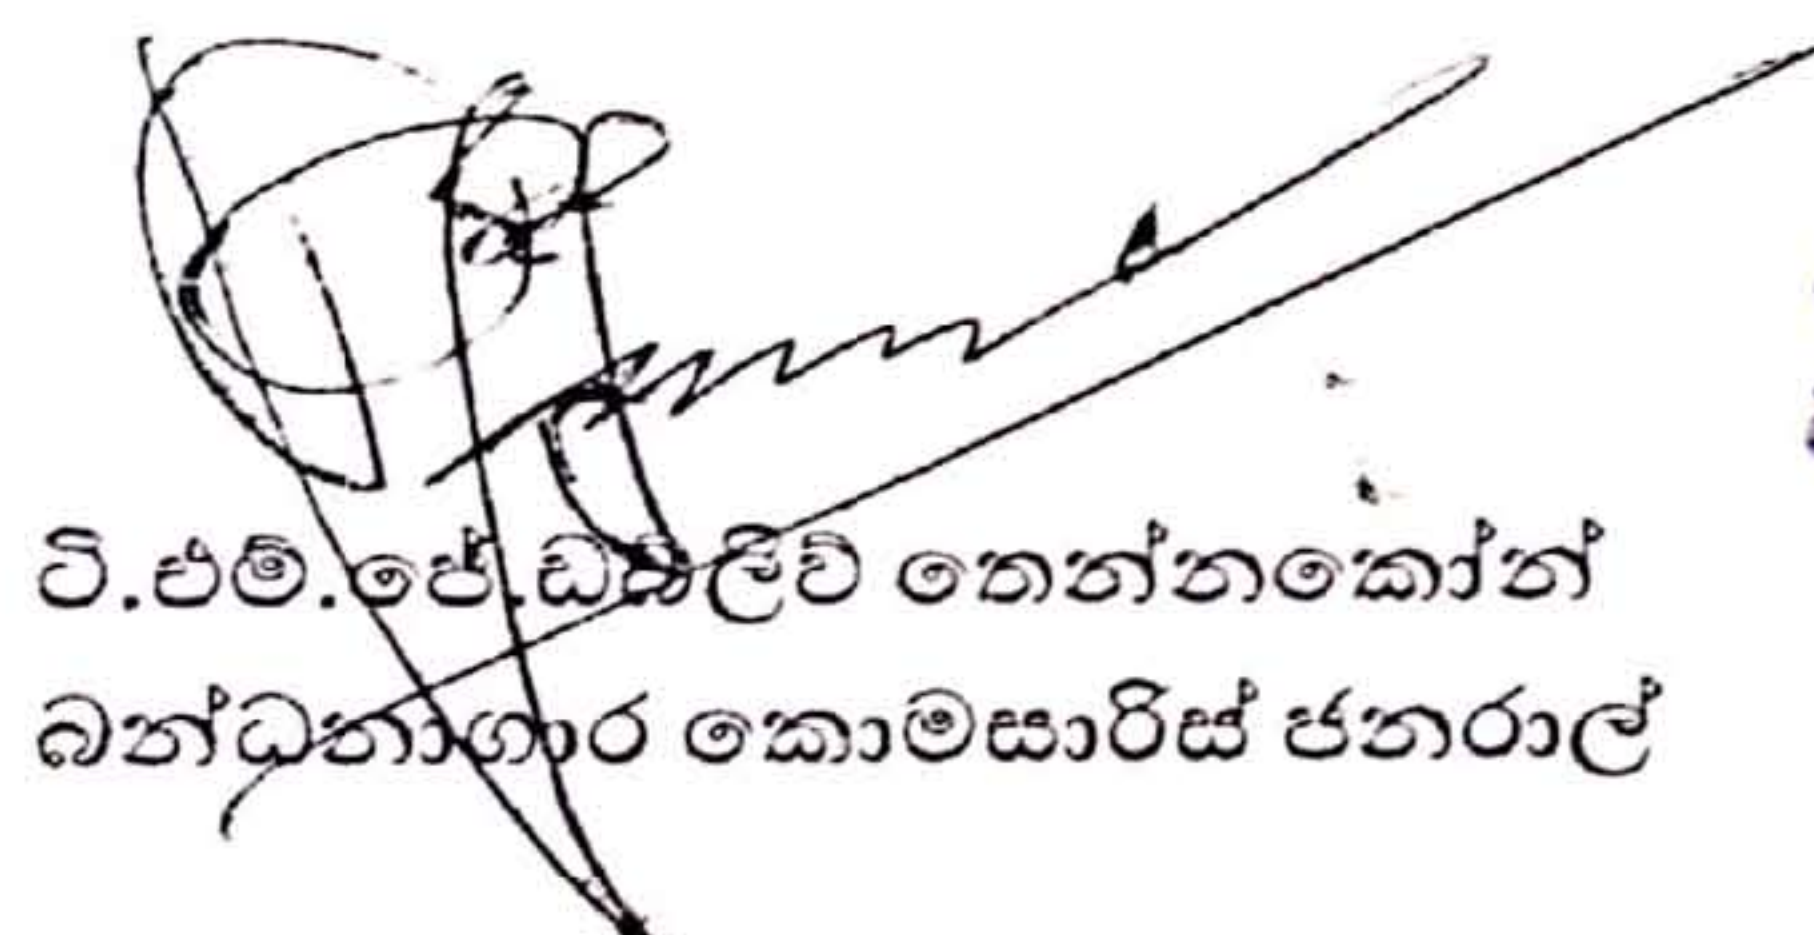 ටි.එම්.ජේ.ඩබ්ලිව් තෙන්නකෝන්
බන්ධනාගාර කොමසාරිස් ජනරාල්